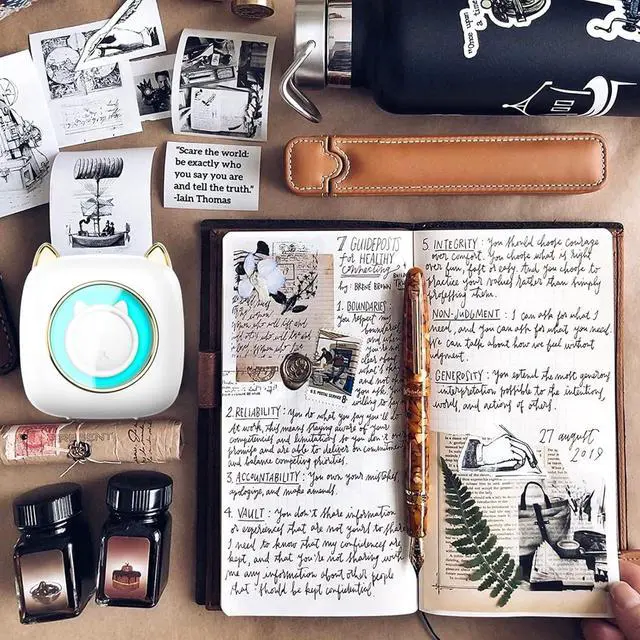 "Once upon
a time
"Scare the world:
be exactly who
you say you are
and tell the truth."
-Iain Thomas
7 GUIDEPOSTS
for HEALTHY
connecting
by: BRENÉ BROWN
1. BOUNDARIES:
you respect my
boundaries,
and when
clear about
what's
and not
you ask,
willing to
U.S. POSTAL SERVICE
8c
2. RELIABILITY: you do what you say you'll do.
At work, this means staying aware of your
competencies and limitations so you don't over
promise and are able to deliver on commitments
and balance competing priorities.
3. ACCOUNTABILITY: you own your mistakes,
apologize, and make amends.
4. VAULT: you don't share information
or experiences that are not yours to share
I need to know that my confidences are
kept, and that you're not sharing with
me any information about other people
that should be kept confidential.
5 INTEGRITY: you should choose courage
over comfort. You choose what is right
over fun, fast or easy. And you choose to
practice your values rather than simply
professing them.
NON-JUDGMENT: I can ask for what I
need, and you can ask for what you need.
We can talk about how we feel without
judgment.
GENEROSITY: you extend the most generous
interpretation possible to the intentions,
words, and actions of others.
27 august
2019